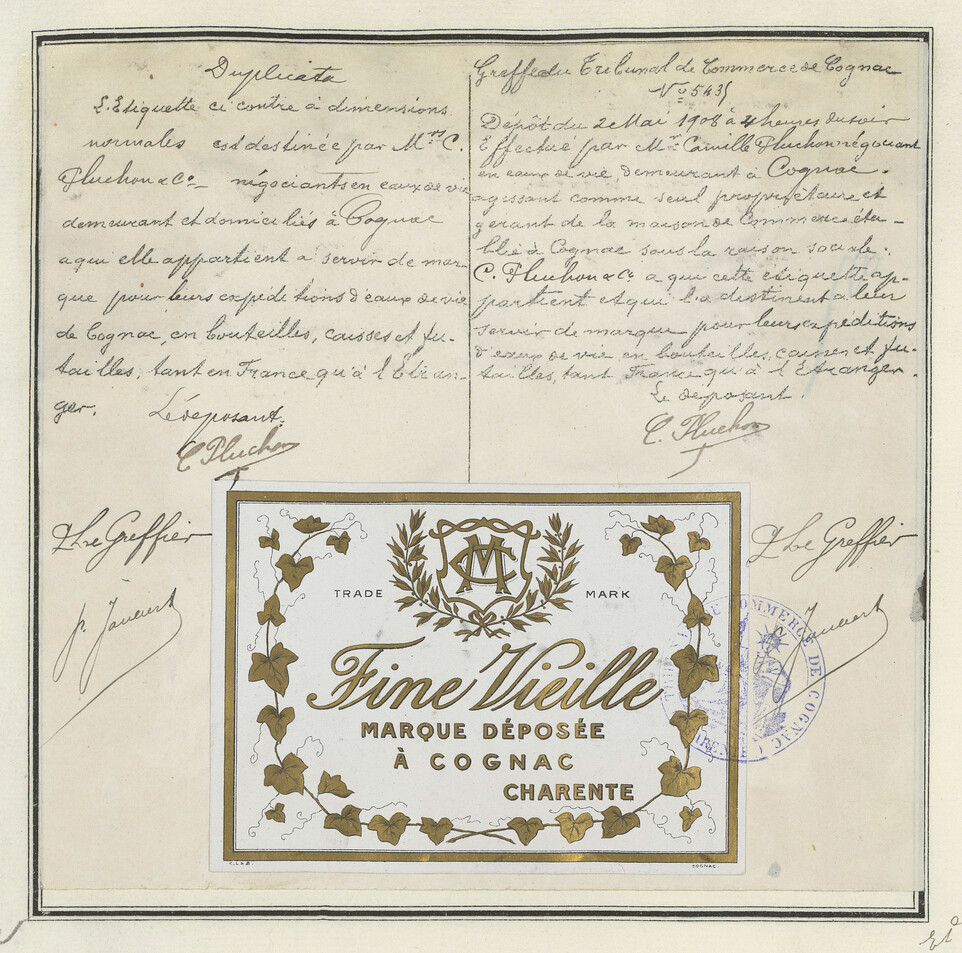 Duplicata
L'Etiquette ci contre à dimensions
normales est destinée par Mrs C.
Pluchon & Co négociants en eaux de vie
demeurant et domiciliés à Cognac
a qui elle appartient a servir de mar-
que pour leurs expéditions d'eaux de vie
de Cognac, en bouteilles, caisses et fu-
tailles, tant en France qu'à l'Etran-
ger.
Le déposant.
C Pluchon
Greffe du Tribunal de Commerce de Cognac
No 5435
Dépôt du 2 Mai 1908 à 4 heures du soir
Effectué par Mr Camille Pluchon négociant
en eaux de vie, demeurant à Cognac.
agissant comme seul propriétaire et
gerant de la maison de Commerce éta-
blie à Cognac sous la raison sociale:
C. Pluchon & Co a qui cette etiquette ap-
partient et qui la destinent a leur
servir de marque pour leurs expeditions
d'eaux de vie en bouteilles, caisses et fu-
tailles, tant France qu'à l'Etranger.
Le deposant
C. Pluchon
P. Le Greffier
P. Le Greffier
TRADE MARK
Fine Vieille
MARQUE DÉPOSÉE
À COGNAC
CHARENTE
COGNAC.
COMMERCE DE COGNAC